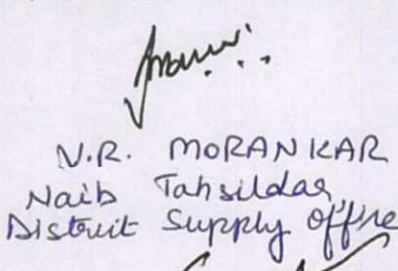 V.R. MORANKAR
Naib Tahsildar
District Supply Office